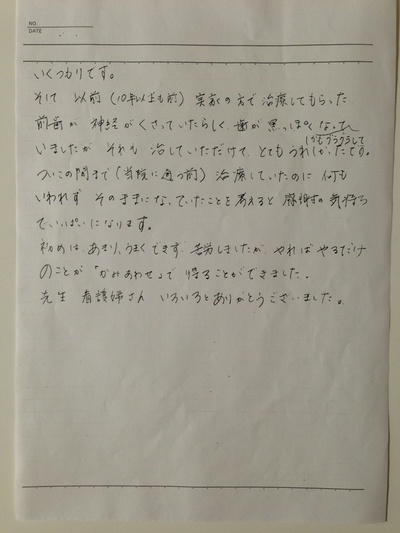 NO.
DATE
いくつもりです。
そして 以前(10年以上も前) 実家の方で治療してもらった
前歯が 神経がくさっていたらしく、歯が黒っぽくなって
しかもグラグラして
いましたが それも 治していただけて、とてもうれしかったです。
ついこの間まで(当院に通う前) 治療していたのに 何も
いわれず そのままになっていたことを考えると 感謝の気持ち
でいっぱいになります。
初めは あまりうまくできず 苦労しましたが やればやるだけ
のことが「かみあわせ」で 得ることができました。
先生 看護婦さん いろいろとありがとうございました。